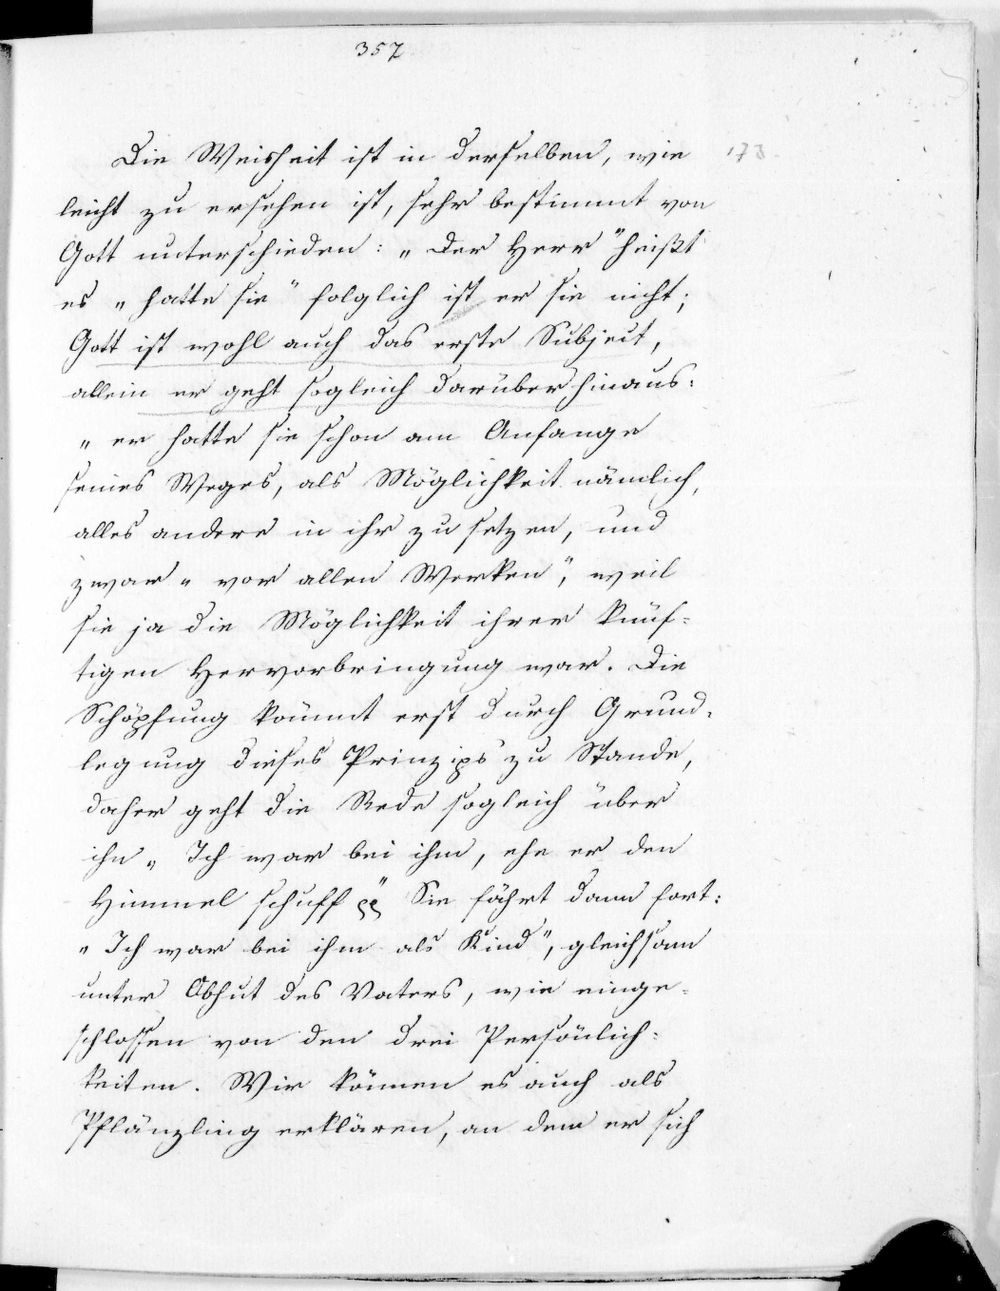 357
Die Weisheit ist in derselben, wie 173
leicht zu ersehen ist, sehr bestimmt von
Gott unterschieden: „Der Herr" heißt
es „hatte sie" folglich ist er sie nicht;
Gott ist wohl auch das erste Subject,
allein er geht sogleich darüber hinaus:
„er hatte sie schon am Anfange
seines Weges, als Möglichkeit nämlich,
alles andere in ihr zu setzen, und
zwar „vor allen Werken", weil
sie ja die Möglichkeit ihrer künf-
tigen Hervorbringung war. Die
Schöpfung kommt erst durch Grund-
legung dieses Prinzips zu Stande,
daher geht die Rede sogleich über
ihn „Ich war bei ihm, ehe er den
Himmel schuff" Sie fährt dann fort:
„Ich war bei ihm als Kind", gleichsam
unter Obhut des Vaters, wie einge-
schlossen von den drei Persönlich-
keiten. Wir können es auch als
Pflänzling erklären, an dem er sich